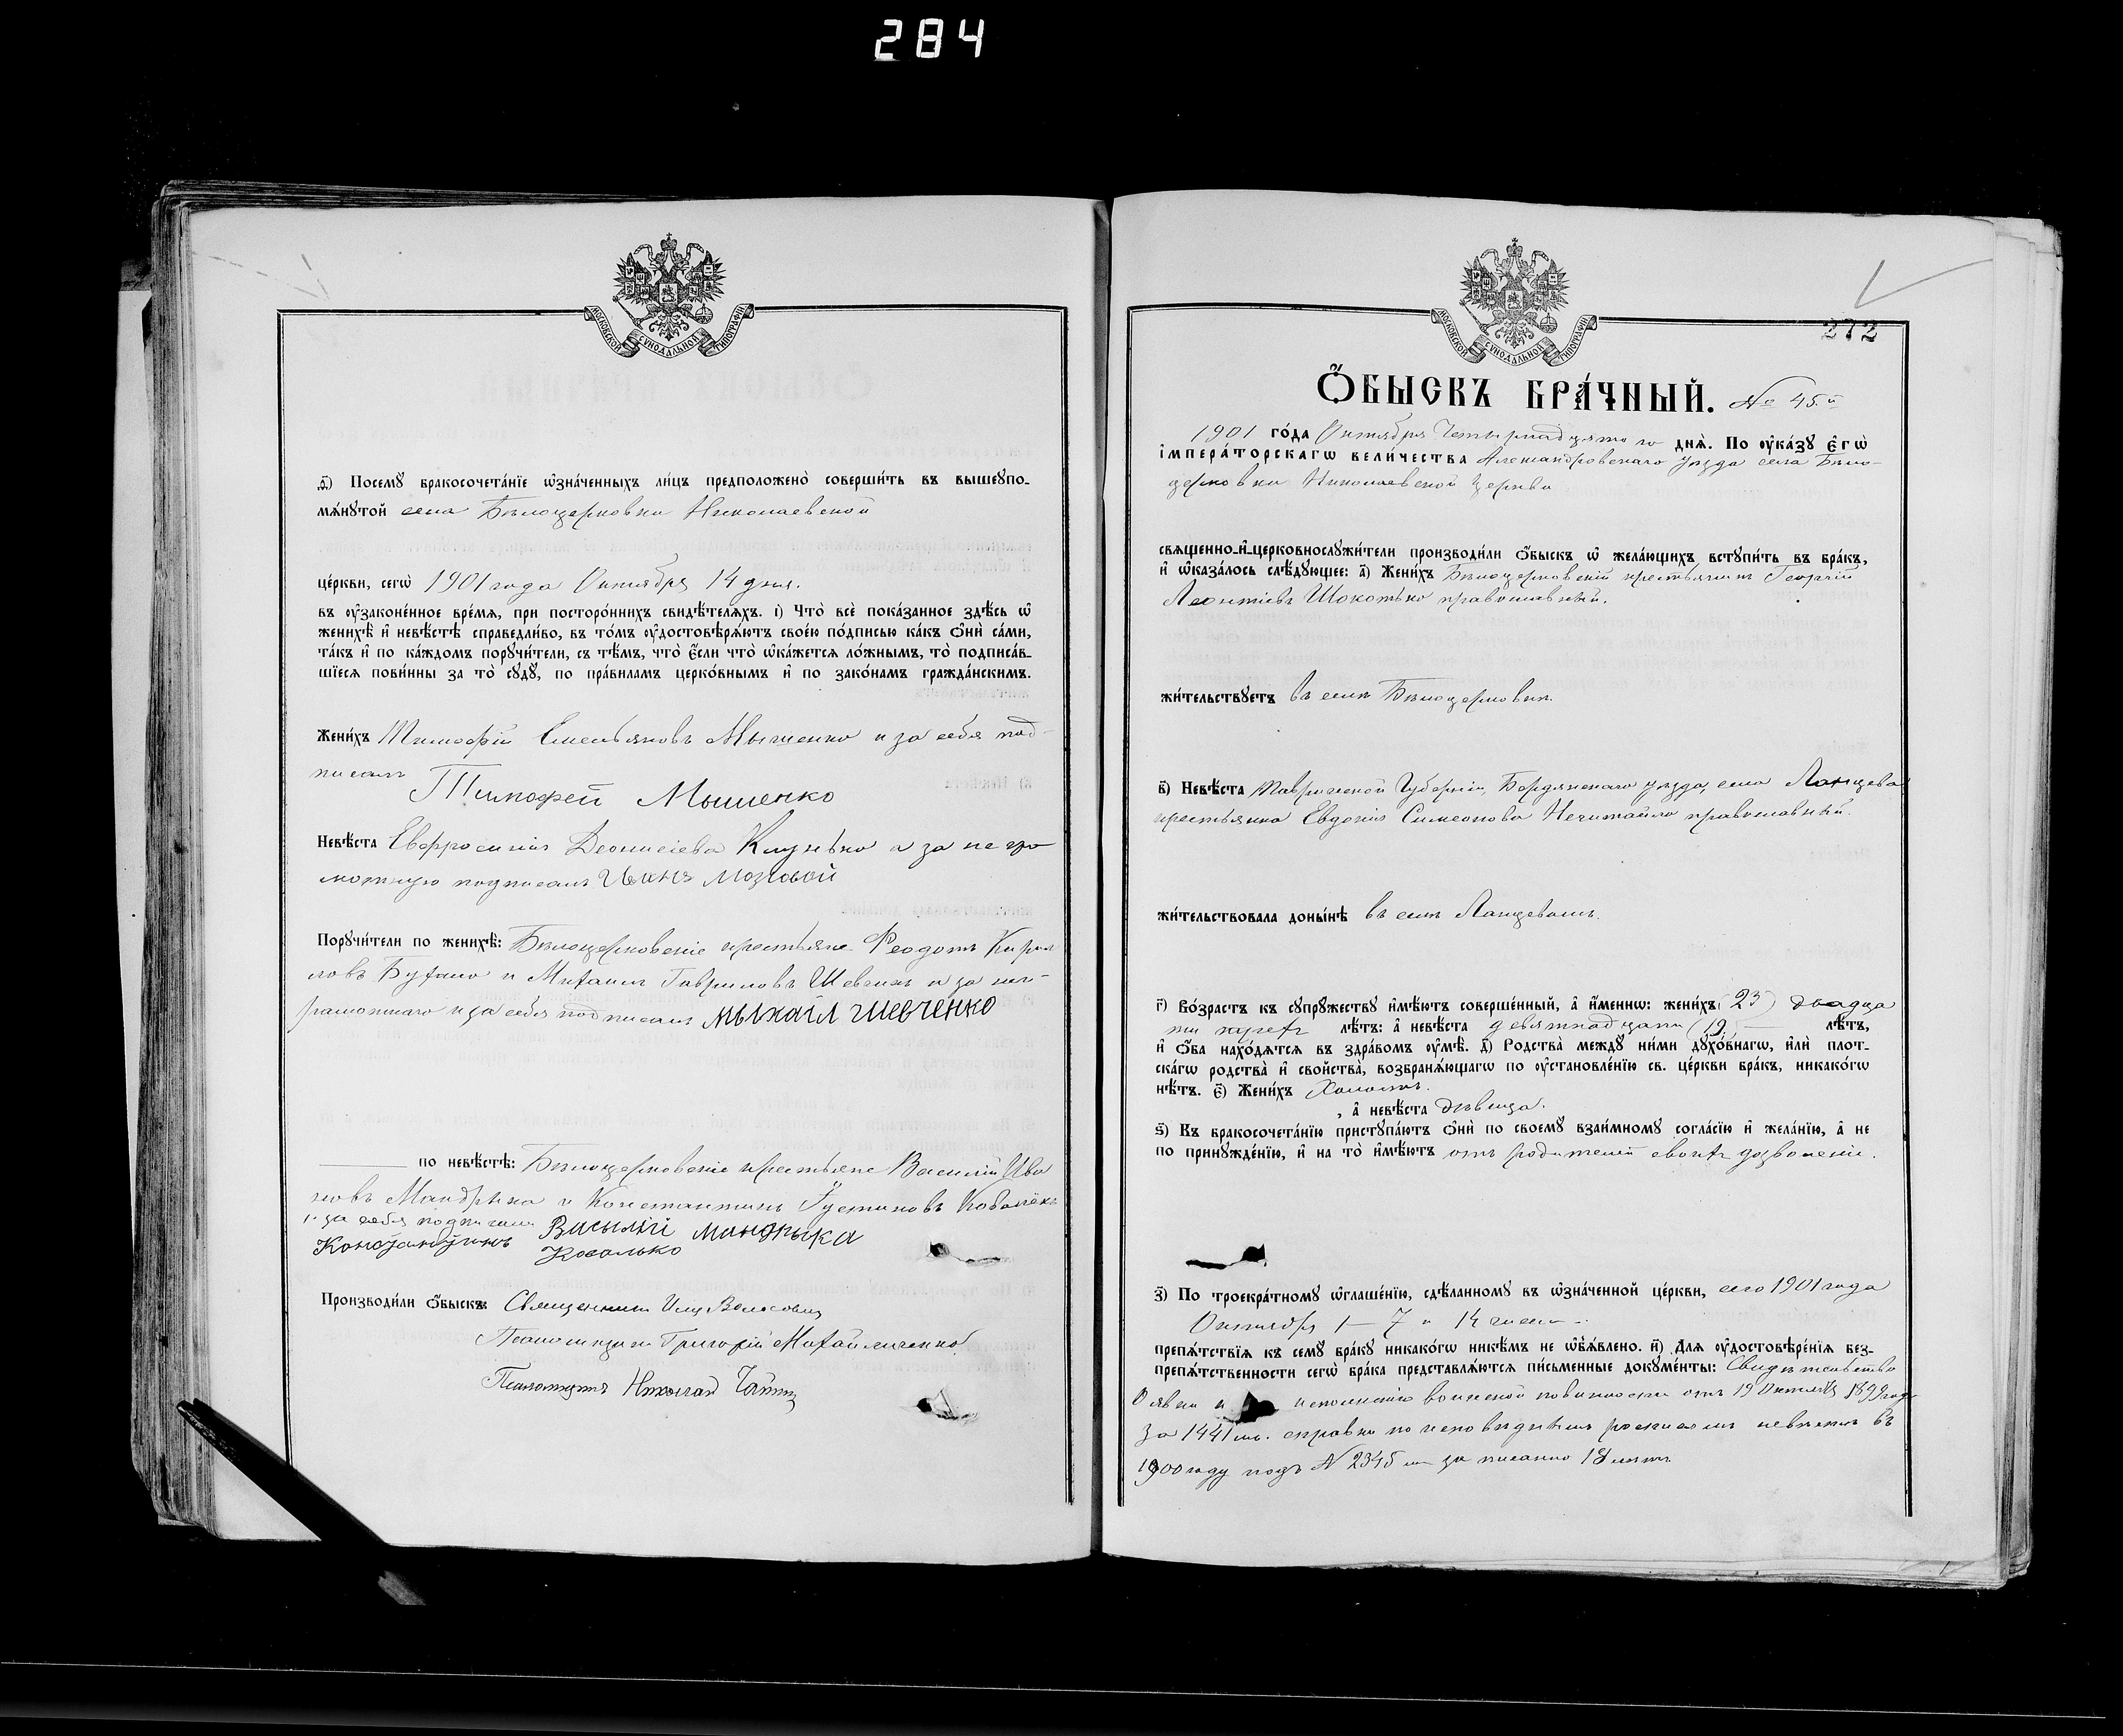 284
МОСКОВСКОЙ СѴНОДАЛЬНОЙ ТИПОГРАФІИ
ѳ҃) Посемꙋ̀ бракосочета́нїе ѡ҆зна́ченныхъ ли́цъ предположено̀ соверши́ть въ вышеꙋпо-
мѧ́нꙋтой села Бѣлоцерковки Николаевской
це́ркви, сегѡ̀ 1901 года Октября 14 дня.
въ ᲂу҆зако́ненное вре́мѧ, при посторо́ннихъ свидѣ́телѧхъ. і҃) Что̀ всѐ пока́занное здѣ́сь ѡ҆
женихѣ̀ и҆ невѣ́стѣ справедли́во, въ то́мъ ᲂу҆достовѣрѧ́ютъ свое́ю по́дписью ка́къ ѻ҆нѝ са́ми,
та́къ и҆ по ка́ждомъ порꙋчи́тели, съ тѣ́мъ, что̀ є҆́сли что̀ ѡ҆ка́жетсѧ ло́жнымъ, то̀ подписа́в-
шїесѧ пови́нны за то̀ сꙋдꙋ̀, по пра́виламъ церко́внымъ и҆ по зако́намъ гражда́нскимъ.
Жени́хъ Тимофій Емельяновъ Мышенко и за себя под-
писалъ Тимофей Мышенко
Невѣ́ста Евфросинія Деонисіева Клунько а за не гра
мотную подписалъ Иванъ Мозговой
Порꙋчи́тели по женихѣ̀: Бѣлоцерковскіе крестьяне Феодотъ Кирил
ловъ и Михаилъ Гавриловъ Шевченко и за негра-
рамотнаго и за себя подписалъ Мыхаіл Шевченко
по невѣ́стѣ: Бѣлоцерковскіе крестьяне Василій Ива
новъ Мандрыка и Константинъ Іустиновъ Ковалёкъ
и за себя подписали Васылій Мандрыка
Константинъ Ковалько
Производи́ли ѻ҆́быскъ: Священникъ
Псаломщикъ Григорій Михайличенко
Псаломщикъ Николай
МОСКОВСКОЙ СѴНОДАЛЬНОЙ ТИПОГРАФІИ
272
Ѻ҆́БЫСКЪ БРА́ЧНЫЙ. № 45.й
1901 го́да Октября Четырнадцятого днѧ̀. По ᲂу҆ка́зꙋ Є҆гѡ̀
І҆мпера́торскагѡ вели́чества Александровскаго уѣзда села Бѣло-
церковки Николаевской церкви
свѧще́нно-и҆-церковнослꙋжи́тели производи́ли ѻ҆́быскъ ѡ҆ жела́ющихъ встꙋпи́ть въ бра́къ,
и҆ ѡ҆каза́лось слѣ́дꙋющее: а҃) Жени́хъ Бѣлоцерковскій крестьянинъ Георгій
Леонтіевъ Шокотько православный.
жи́тельствꙋетъ въ селѣ Бѣлоцерковкѣ.
в҃) Невѣ́ста Таврической Губерніи, Бердянскаго уѣзда, села Ланцева
крестьянка Евдокія Симеонова Нечитайло православный.
жи́тельствовала доны́нѣ въ селѣ Ланцевомъ.
г҃) Во́зрастъ къ сꙋпрꙋ́жествꙋ и҆мѣ́ютъ соверше́нный, а҆ и҆́меннѡ: жени́хъ (23) двадца
ти трехъ лѣ́тъ: а҆ невѣ́ста девятнадцати (19) лѣ́тъ,
и҆ ѻ҆́ба нахо́дѧтсѧ въ здра́вомъ ᲂу҆мѣ̀. д҃) Родства̀ междꙋ ни́ми дꙋхо́внагѡ, и҆лѝ плот-
ска́гѡ родства̀ и҆ сво́йства, возбранѧ́ющагѡ по ᲂу҆становле́нїю св. це́ркви бра́къ, никако́гѡ
нѣ́тъ. є҃) Жени́хъ Холостъ.
, а҆ невѣ́ста дѣвица.
ѕ҃) Къ бракосочета́нїю пристꙋпа́ютъ ѻ҆нѝ по своемꙋ̀ взаи́мномꙋ согла́сїю и҆ жела́нїю, а҆ не
по принꙋжде́нїю, и҆ на то̀ и҆мѣ́ютъ отъ родителей своихъ дозволеніе.
з҃) По троекра́тномꙋ ѡ҆глаше́нїю, сдѣ́ланномꙋ въ ѡ҆зна́ченной це́ркви, сего 1901 года
Октября 1 – 7 и 14 числа –
препѧ́тствїѧ къ семꙋ̀ бра́кꙋ никако́гѡ никѣ́мъ не ѡ҆б̾ѧ́влено. и҃) Для ᲂу҆достовѣре́нїѧ без-
препѧ́тственности сегѡ̀ бра́ка представлѧ́ютсѧ пи́сьменные докꙋме́нты: Свидѣтельство
О явкѣ къ исполненію воинской повинности отъ 19 Октября 1899 года
За 1441 мъ. справка по исповѣднымъ росписямъ невѣста въ
1900 году подъ № 2345 мъ записано 18 лѣтъ